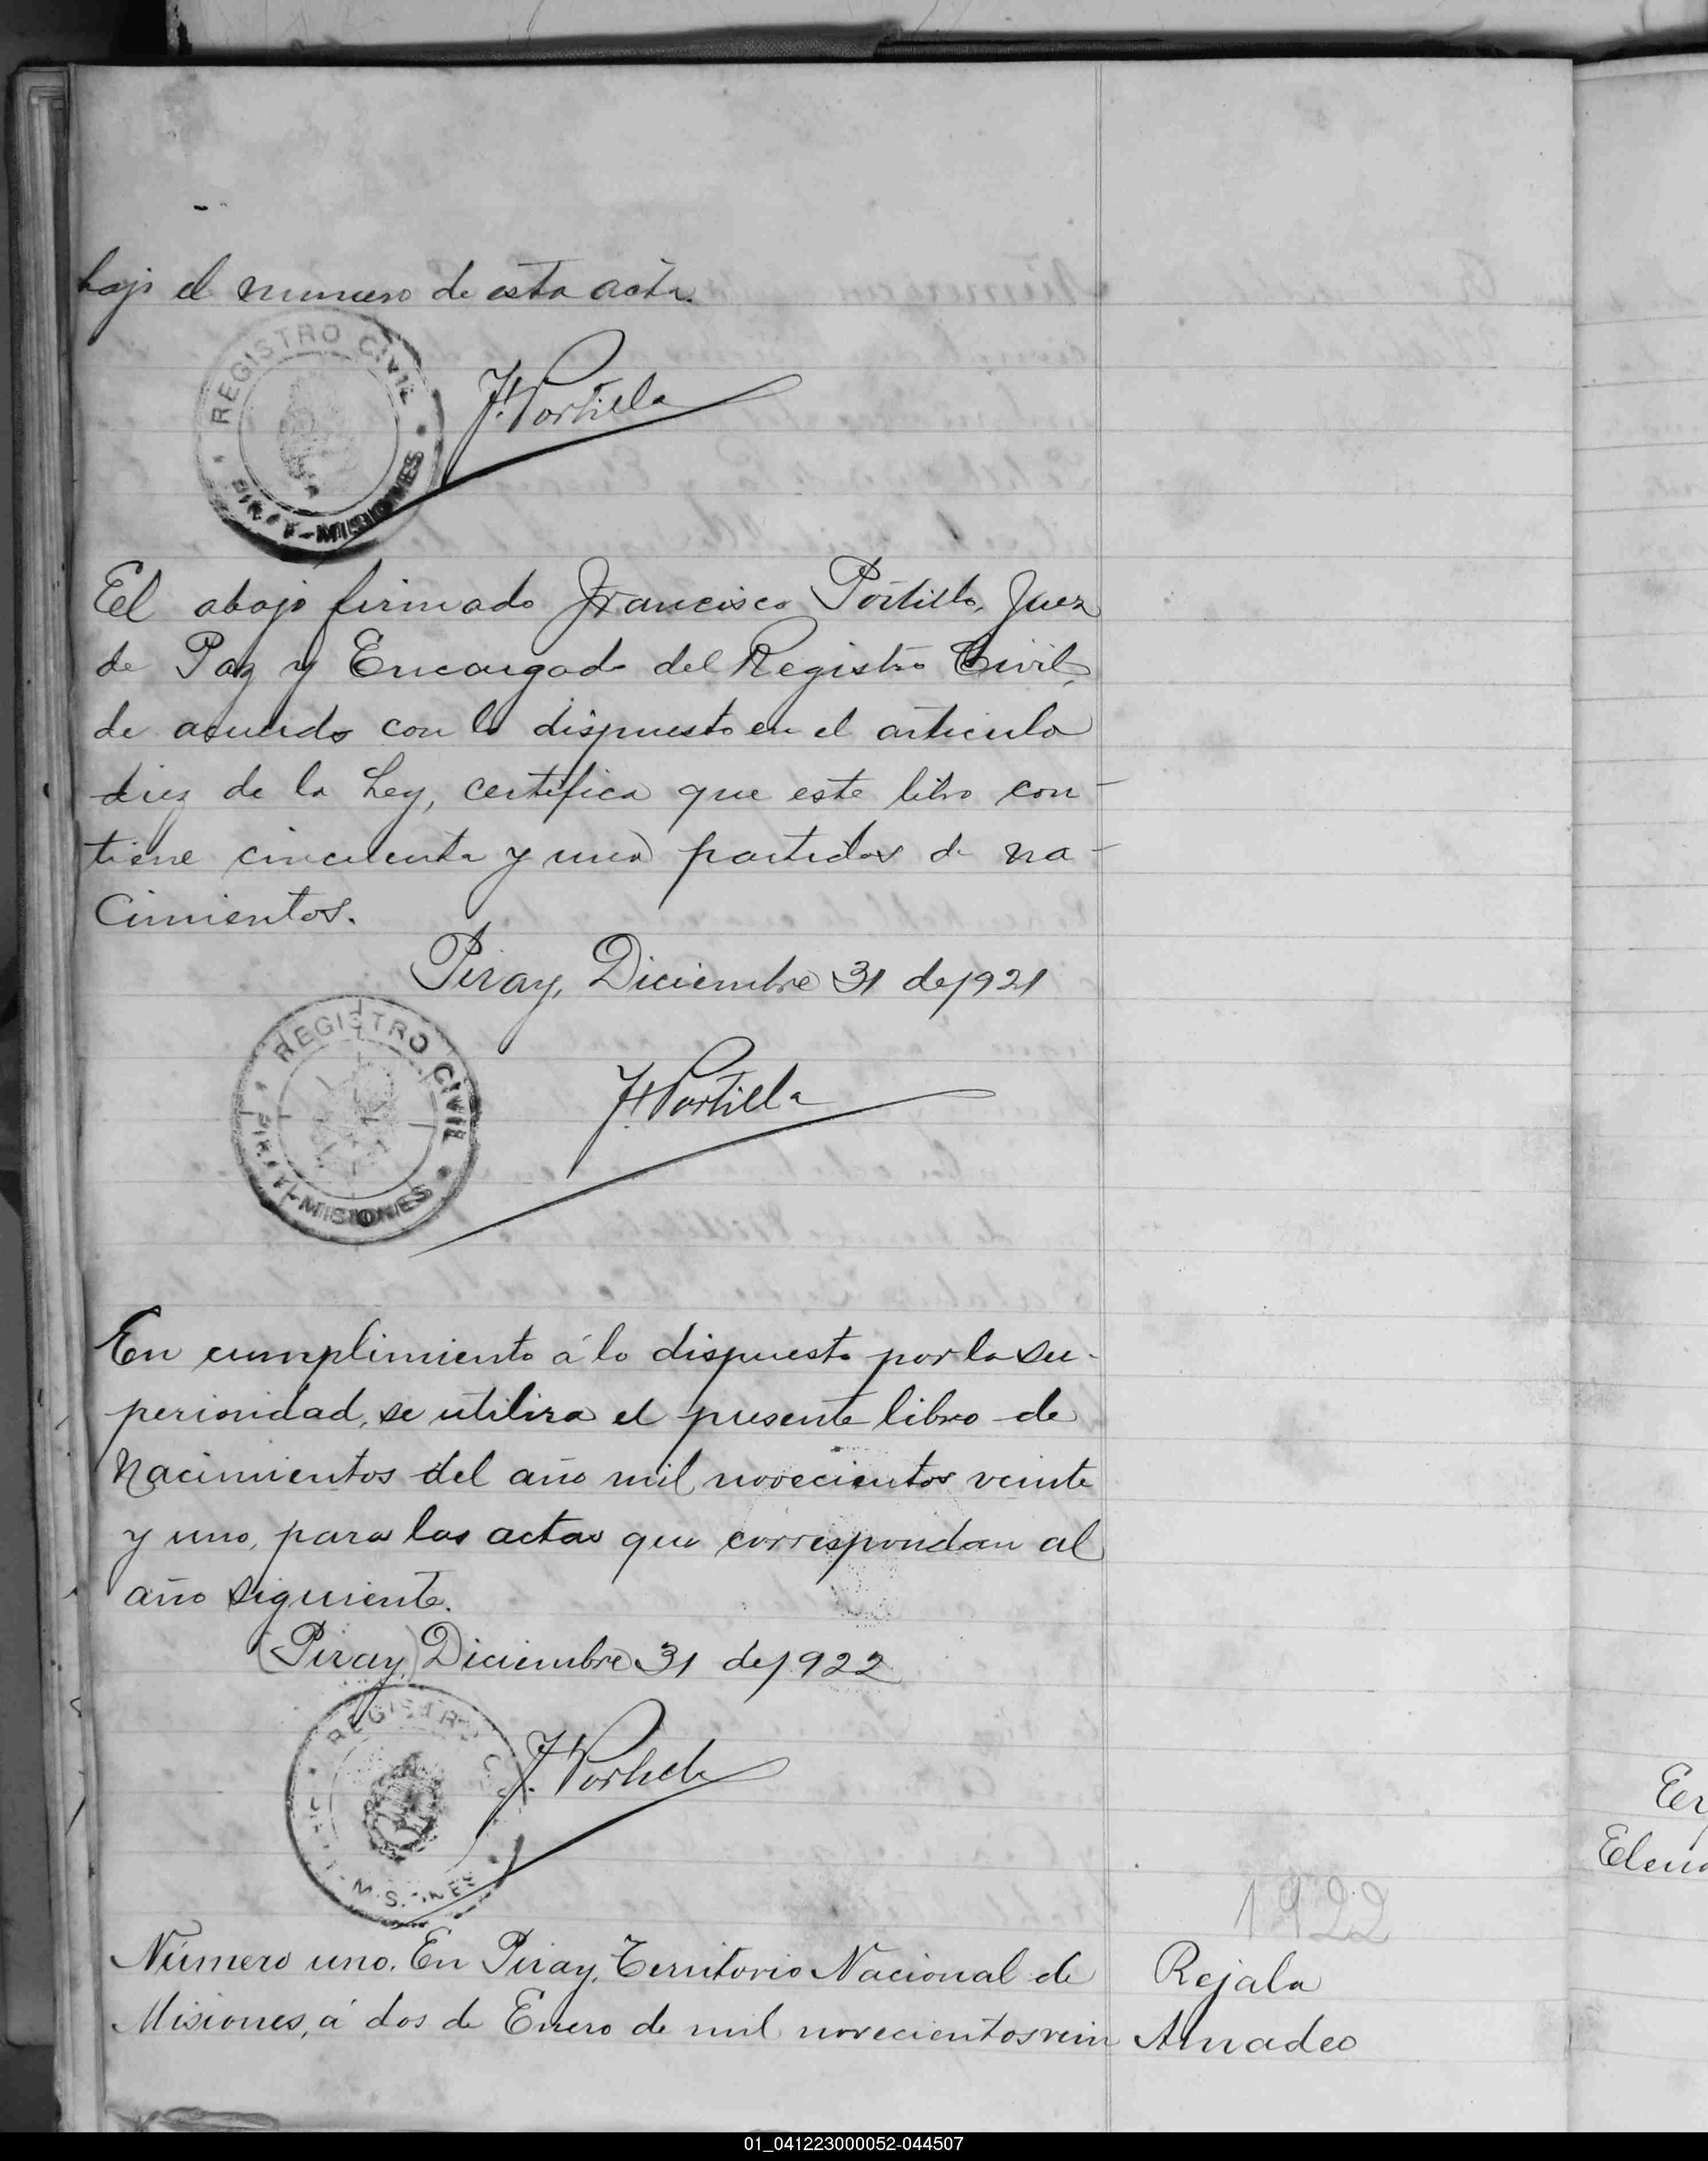 bajo el numero de esta acta.
REGISTRO CIVIL
PIRAY-MISIONES
F. Portillo
El abajo firmado Francisco Portillo, Juez
de Paz y Encargado del Registro Civil,
de acuerdo con lo dispuesto en el articulo
diez de la Ley, certifica que este libro con-
tiene cincuenta y una partidas de na-
cimientos.
Piray, Diciembre 31 de 1921
REGISTRO CIVIL
PIRAY-MISIONES
F. Portillo
En cumplimiento á lo dispuesto por la su-
perioridad, se utiliza el presente libro de
Nacimientos del año mil novecientos veinte
y uno, para las actas que correspondan al
año siguiente.
Piray, Diciembre 31 de 1922
REGISTRO
F. Portillo
1922
Número uno. En Piray, Territorio Nacional de
Rejala
Misiones, á dos de Enero de mil novecientos vein
Amadeo
01_041223000052-044507